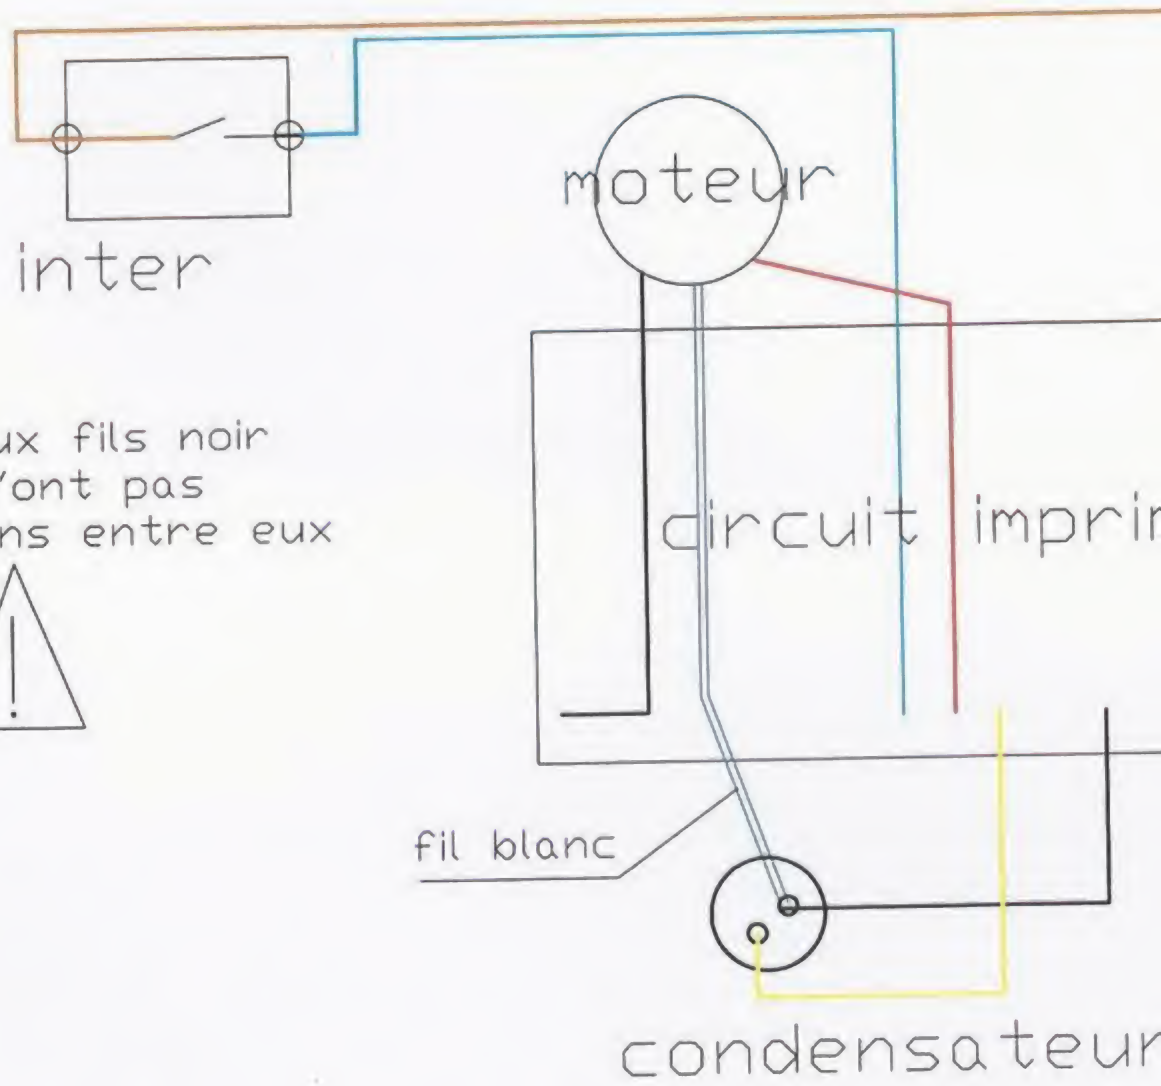 moteur
inter
ux fils noir
'ont pas
ns entre eux
circuit imprim
!
fil blanc
condensateur